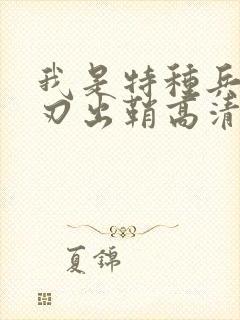 我是特種兵
刃出鞘高清
夏錦